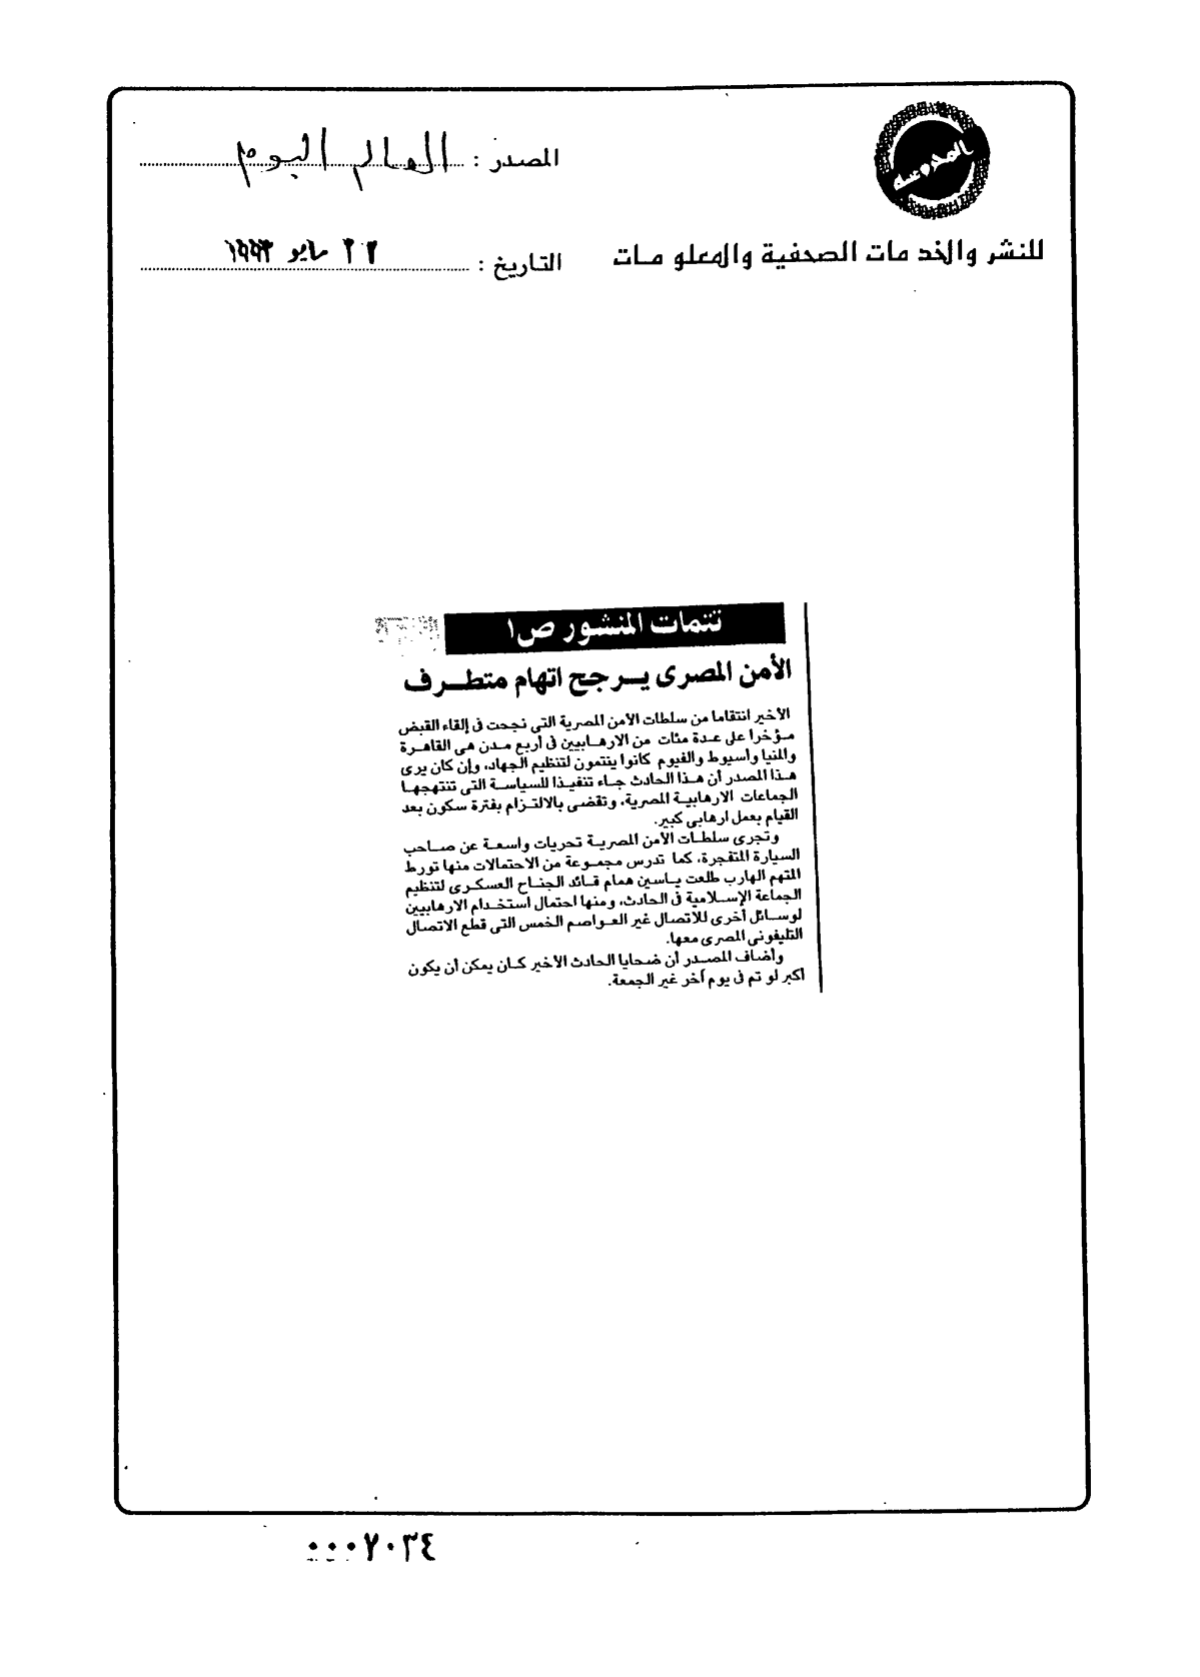 المحروسة
المصدر : العالم اليوم
للنشر والخدمات الصحفية والمعلومات
التاريخ : ٢٢ مايو ١٩٩٣
تتمات المنشور ص١
الأمن المصرى يرجح اتهام متطرف
الأخير انتقاما من سلطات الأمن المصرية التى نجحت فى إلقاء القبض
مؤخرا على عدة مئات من الارهابيين فى أربع مدن هى القاهرة
والمنيا وأسيوط والفيوم كانوا ينتمون لتنظيم الجهاد، وإن كان يرى
هذا المصدر أن هذا الحادث جاء تنفيذا للسياسة التى تنتهجها
الجماعات الارهابية المصرية، وتقضى بالالتزام بفترة سكون بعد
القيام بعمل ارهابى كبير.
وتجرى سلطات الأمن المصرية تحريات واسعة عن صاحب
السيارة المتفجرة، كما تدرس مجموعة من الاحتمالات منها تورط
المتهم الهارب طلعت ياسين همام قائد الجناح العسكرى لتنظيم
الجماعة الإسلامية فى الحادث، ومنها احتمال استخدام الارهابيين
لوسائل أخرى للاتصال غير العواصم الخمس التى قطع الاتصال
التليفونى المصرى معها.
وأضاف المصدر أن ضحايا الحادث الأخير كان يمكن أن يكون
أكبر لو تم فى يوم آخر غير الجمعة.
٠٠٠٧٠٣٤